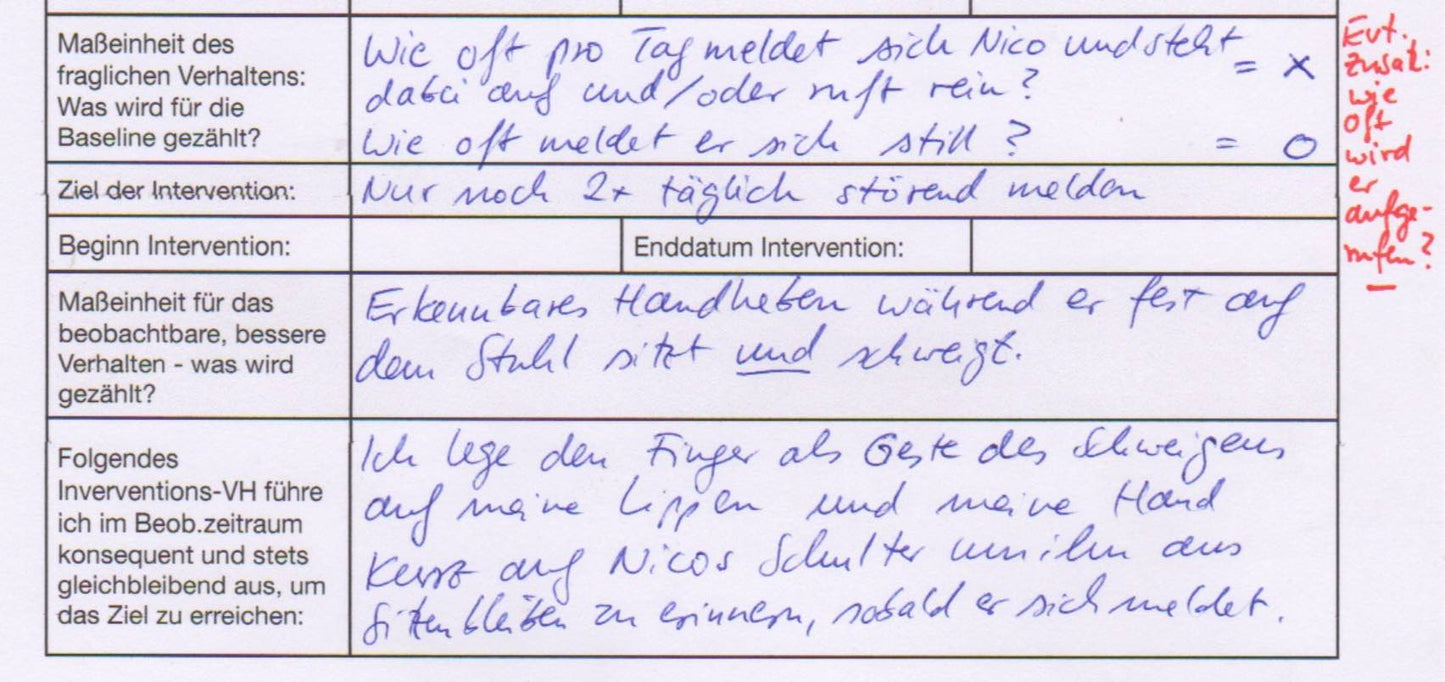 Maßeinheit des
fraglichen Verhaltens:
Was wird für die
Baseline gezählt?
Wie oft pro Tag meldet sich Nico und steht
dabei auf und/oder ruft rein? = x
Wie oft meldet er sich still? = O
Ziel der Intervention:
Nur noch 2x täglich störend melden
Beginn Intervention:
Enddatum Intervention:
Maßeinheit für das
beobachtbare, bessere
Verhalten - was wird
gezählt?
Erkennbares Handheben während er fest auf
dem Stuhl sitzt und schweigt.
Folgendes
Inverventions-VH führe
ich im Beob.zeitraum
konsequent und stets
gleichbleibend aus, um
das Ziel zu erreichen:
Ich lege den Finger als Geste des Schweigens
auf meine Lippen und meine Hand
kurz auf Nicos Schulter um ihn ans
Sitzenbleiben zu erinnern, sobald er sich meldet.
Evt.
Zusatz:
wie
oft
wird
er
aufge-
rufen?